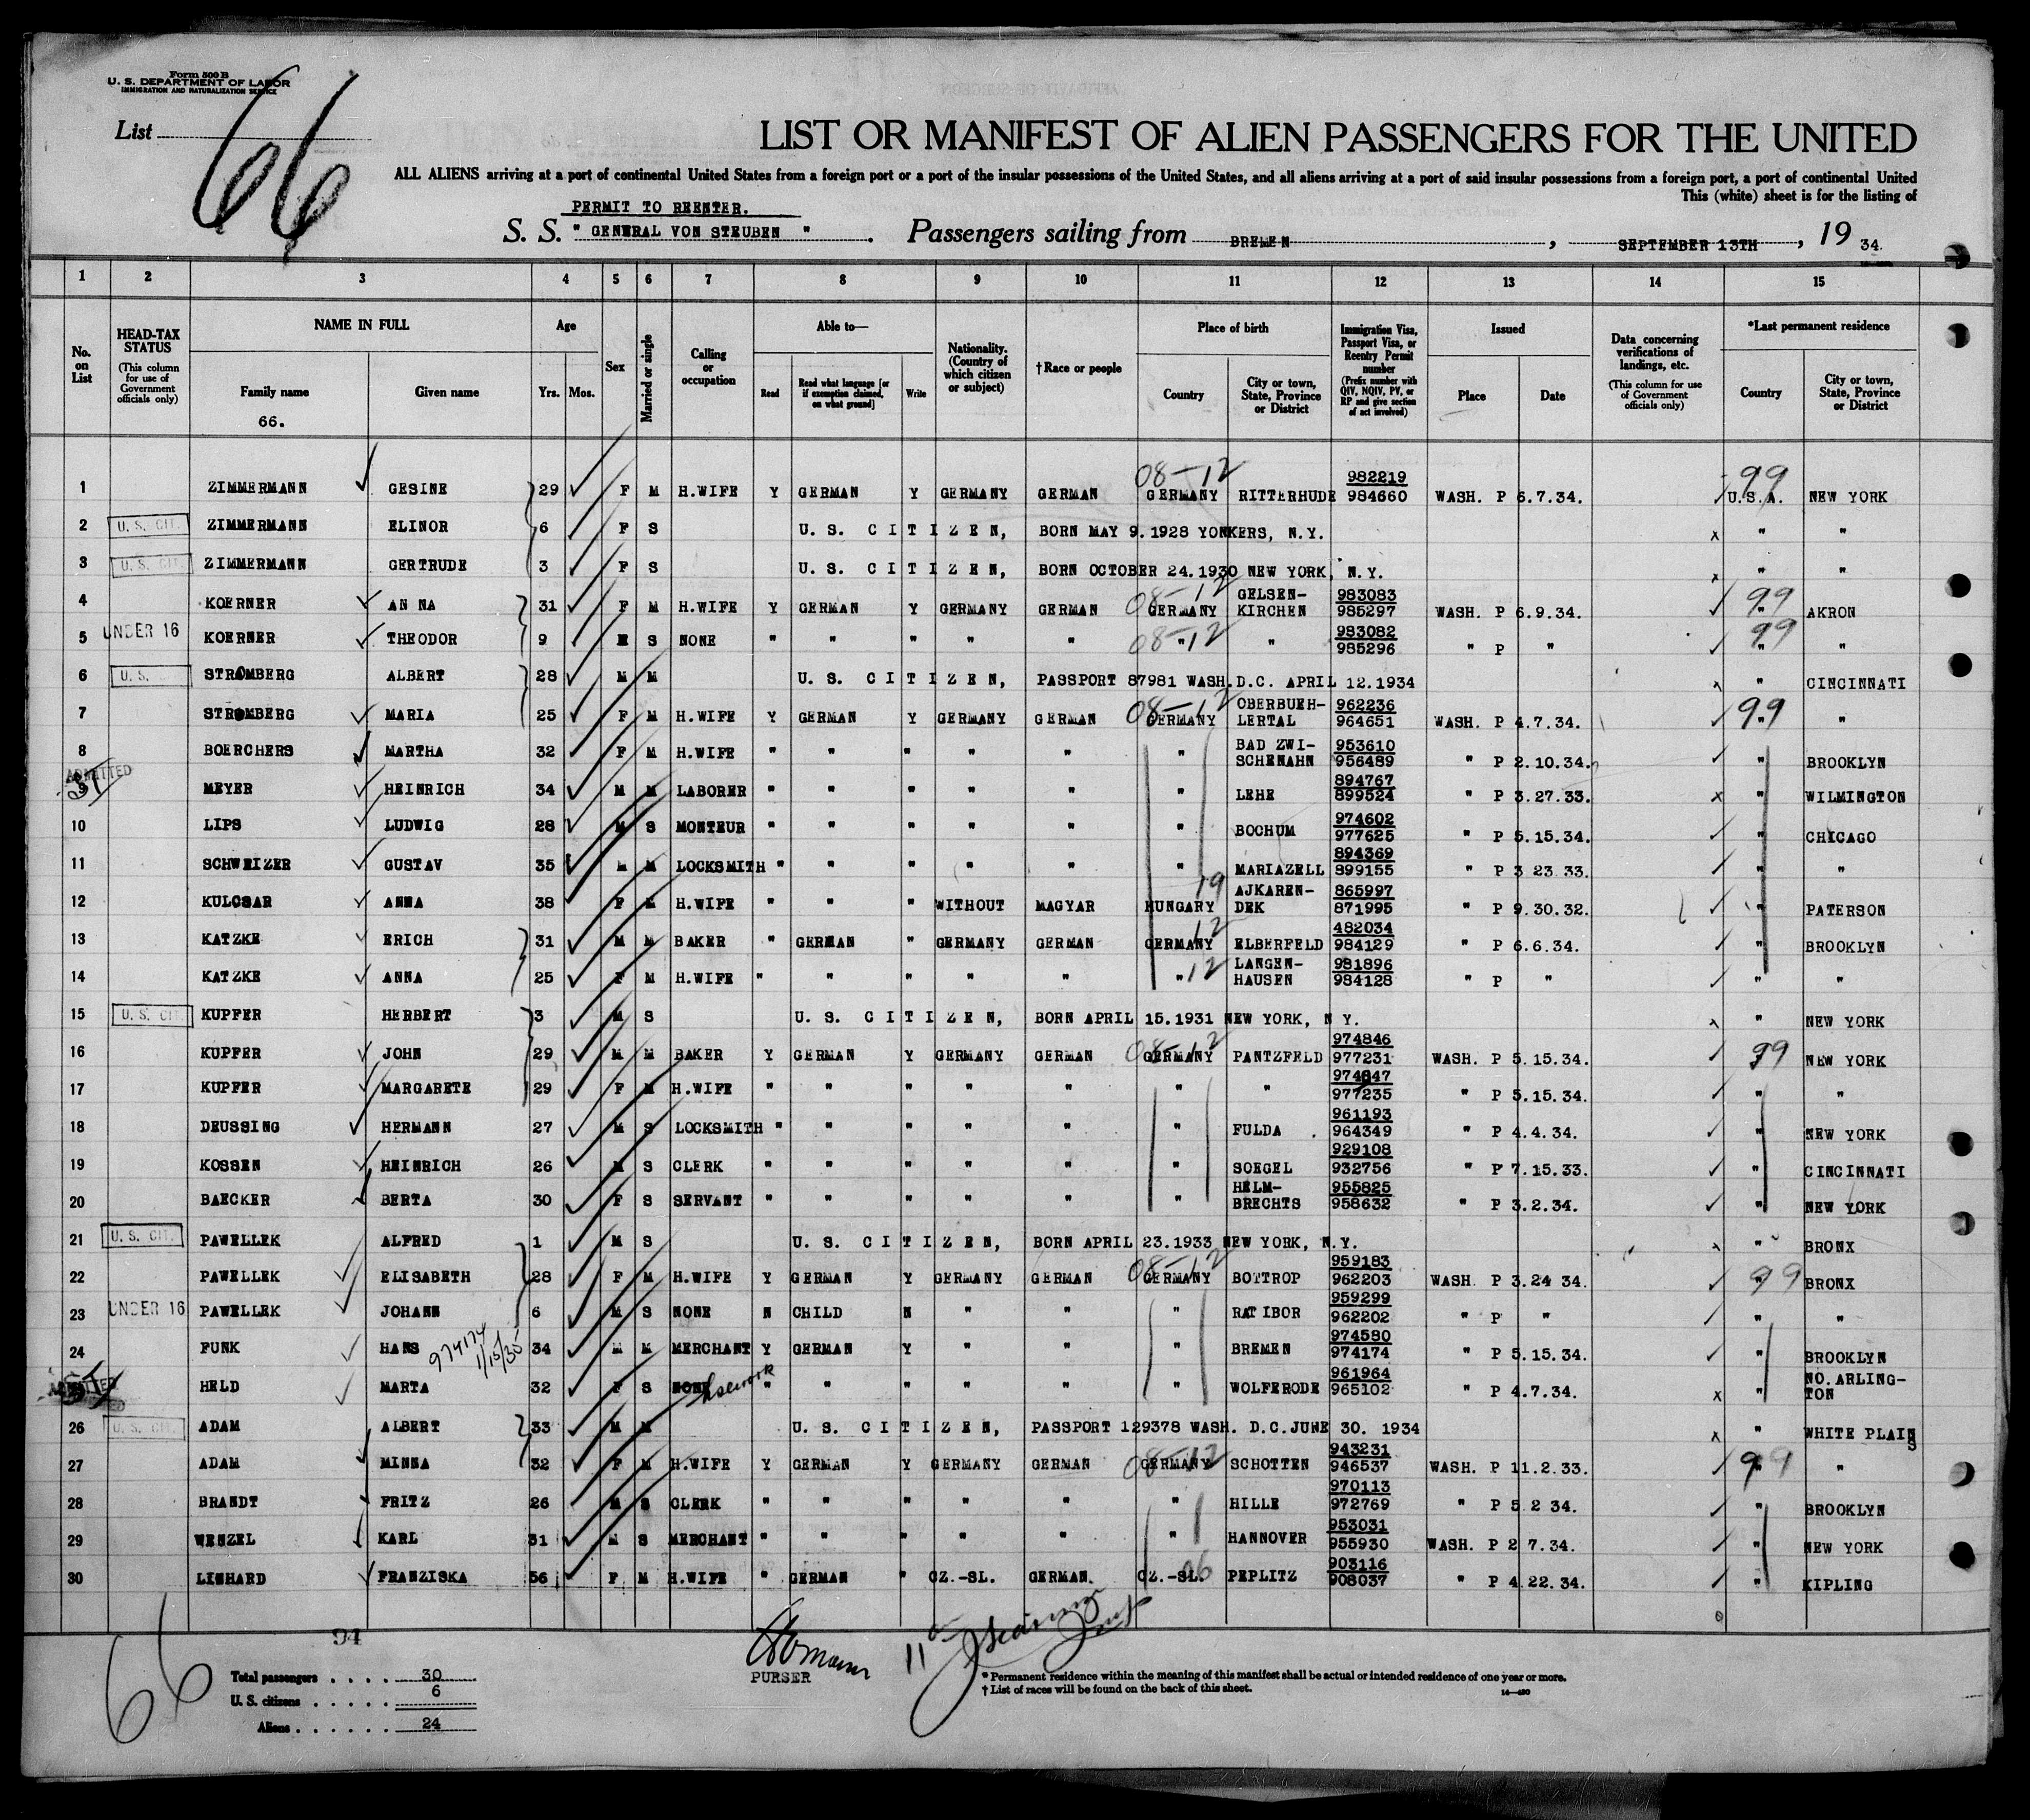 Form 500 B
U. S. DEPARTMENT OF LABOR
IMMIGRATION AND NATURALIZATION SERVICE
List 66
LIST OR MANIFEST OF ALIEN PASSENGERS FOR THE UNITED
ALL ALIENS arriving at a port of continental United States from a foreign port or a port of the insular possessions of the United States, and all aliens arriving at a port of said insular possessions from a foreign port, a port of continental United
This (white) sheet is for the listing of
PERMIT TO REENTER.
S. S. " GENERAL VON STEUBEN " . Passengers sailing from BREMEN , SEPTEMBER 13TH , 19 34.
1 2 3 4 5 6 7 8 9 10 11 12 13 14 15
No. on List
HEAD-TAX STATUS (This column for use of Government officials only)
NAME IN FULL
Family name
66.
Given name
Age
Yrs. Mos.
Sex
Married or single
Calling or occupation
Able to—
Read
Read what language [or if exemption claimed, on what ground]
Write
Nationality. (Country of which citizen or subject)
† Race or people
Place of birth
Country
City or town, State, Province or District
Immigration Visa, Passport Visa, or Reentry Permit number (Prefix number with QIV, NQIV, PV, or RP and give section of act involved)
Issued
Place
Date
Data concerning verifications of landings, etc. (This column for use of Government officials only)
*Last permanent residence
Country
City or town, State, Province or District
1 ZIMMERMANN GESINE 29 F M H.WIFE Y GERMAN Y GERMANY GERMAN 08-12 GERMANY RITTERHUDE 982219 984660 WASH. P 6.7.34. 99 U.S.A. NEW YORK
2 U. S. CIT. ZIMMERMANN ELINOR 6 F S U. S. CITIZEN, BORN MAY 9.1928 YONKERS, N.Y. x " "
3 U. S. CIT. ZIMMERMANN GERTRUDE 3 F S U. S. CITIZEN, BORN OCTOBER 24.1930 NEW YORK, N.Y. x " "
4 KOERNER ANNA 31 F M H.WIFE Y GERMAN Y GERMANY GERMAN 08-12 GERMANY GELSEN-KIRCHEN 983083 985297 WASH. P 6.9.34. 99 " AKRON
5 UNDER 16 KOERNER THEODOR 9 M S NONE " " " " " 08-12 " " 983082 985296 " P " 99 " "
6 U. S. STROMBERG ALBERT 28 M M U. S. CITIZEN, PASSPORT 87981 WASH.D.C. APRIL 12.1934 x " CINCINNATI
7 STROMBERG MARIA 25 F M H.WIFE Y GERMAN Y GERMANY GERMAN 08-12 GERMANY OBERBUEH-LERTAL 962236 964651 WASH. P 4.7.34. 99 " "
8 BOERCHERS MARTHA 32 F M H.WIFE " " " " " " BAD ZWI-SCHENAHN 953610 956489 " P 2.10.34. " BROOKLYN
9 ADMITTED MEYER HEINRICH 34 M M LABORER " " " " " " LEHE 894767 899524 " P 3.27.33. x " WILMINGTON
10 LIPS LUDWIG 28 M S MONTEUR " " " " " " BOCHUM 974602 977625 " P 5.15.34. " CHICAGO
11 SCHWEIZER GUSTAV 35 M M LOCKSMITH " " " " " " MARIAZELL 894369 899155 " P 3 23 33. " "
12 KULCSAR ANNA 38 F M H.WIFE " " " WITHOUT MAGYAR 19 HUNGARY AJKAREN-DEK 865997 871995 " P 9.30.32. " PATERSON
13 KATZKE ERICH 31 M M BAKER " GERMAN " GERMANY GERMAN 12 GERMANY ELBERFELD 482034 984129 " P 6.6.34. " BROOKLYN
14 KATZKE ANNA 25 F M H.WIFE " " " " " " 12 LANGEN-HAUSEN 981896 984128 " P " " "
15 U. S. CIT. KUPFER HERBERT 3 M S U. S. CITIZEN, BORN APRIL 15.1931 NEW YORK, N Y. x " NEW YORK
16 KUPFER JOHN 29 M M BAKER Y GERMAN Y GERMANY GERMAN 08-12 GERMANY PANTZFELD 974846 977231 WASH. P 5.15.34. 99 NEW YORK
17 KUPFER MARGARETE 29 F M H.WIFE " " " " " " " 974847 977235 " P 5.15.34. " "
18 DEUSSING HERMANN 27 M S LOCKSMITH " " " " " " FULDA . 961193 964349 " P 4.4.34. " NEW YORK
19 KOSSEN HEINRICH 26 M S CLERK " " " " " " SOEGEL 929108 932756 " P 7.15.33. " CINCINNATI
20 BAECKER BERTA 30 F S SERVANT " " " " " " HELM-BRECHTS 955825 958632 " P 3.2.34. " NEW YORK
21 U. S. CIT. PAWELLEK ALFRED 1 M S U. S. CITIZEN, BORN APRIL 23.1933 NEW YORK, N.Y. x " BRONX
22 PAWELLEK ELISABETH 28 F M H.WIFE Y GERMAN Y GERMANY GERMAN 08-12 GERMANY BOTTROP 959183 962203 WASH P 3.24 34. 99 BRONX
23 UNDER 16 PAWELLEK JOHANN 6 M S NONE N CHILD N " " " RATIBOR 959299 962202 " P " " "
24 FUNK HANS 974174 1/15/35 34 M M MERCHANT Y GERMAN Y " " " BREMEN 974580 974174 " P 5.15.34. " BROOKLYN
HELD MARTA 32 F S NONE hsework " " " " " " WOLFERODE 961964 965102 " P 4.7.34. x " NO.ARLING-TON
26 U. S. CIT. ADAM ALBERT 33 M M U. S. CITIZEN, PASSPORT 129378 WASH. D.C.JUNE 30. 1934 x " WHITE PLAINS
27 ADAM MINNA 32 F M H.WIFE Y GERMAN Y GERMANY GERMAN 08-12 GERMANY SCHOTTEN 943231 946537 WASH. P 11.2.33. 99 "
28 BRANDT FRITZ 26 M S CLERK " " " " " " HILLE 970113 972769 " P 5 2 34. " BROOKLYN
29 WENZEL KARL 31 M S MERCHANT " " " " " " HANNOVER 953031 955930 WASH. P 2 7.34. " NEW YORK
30 LINHARD FRANZISKA 56 F M H.WIFE " GERMAN " CZ.-SL. GERMAN. CZ.-SL. 06 PEPLITZ 903116 908037 " P 4.22.34. " KIPLING
66
94
Total passengers . . . . 30
U. S. citizens . . . . . 6
Aliens . . . . . . 24
PURSER
* Permanent residence within the meaning of this manifest shall be actual or intended residence of one year or more.
† List of races will be found on the back of this sheet.
14—480